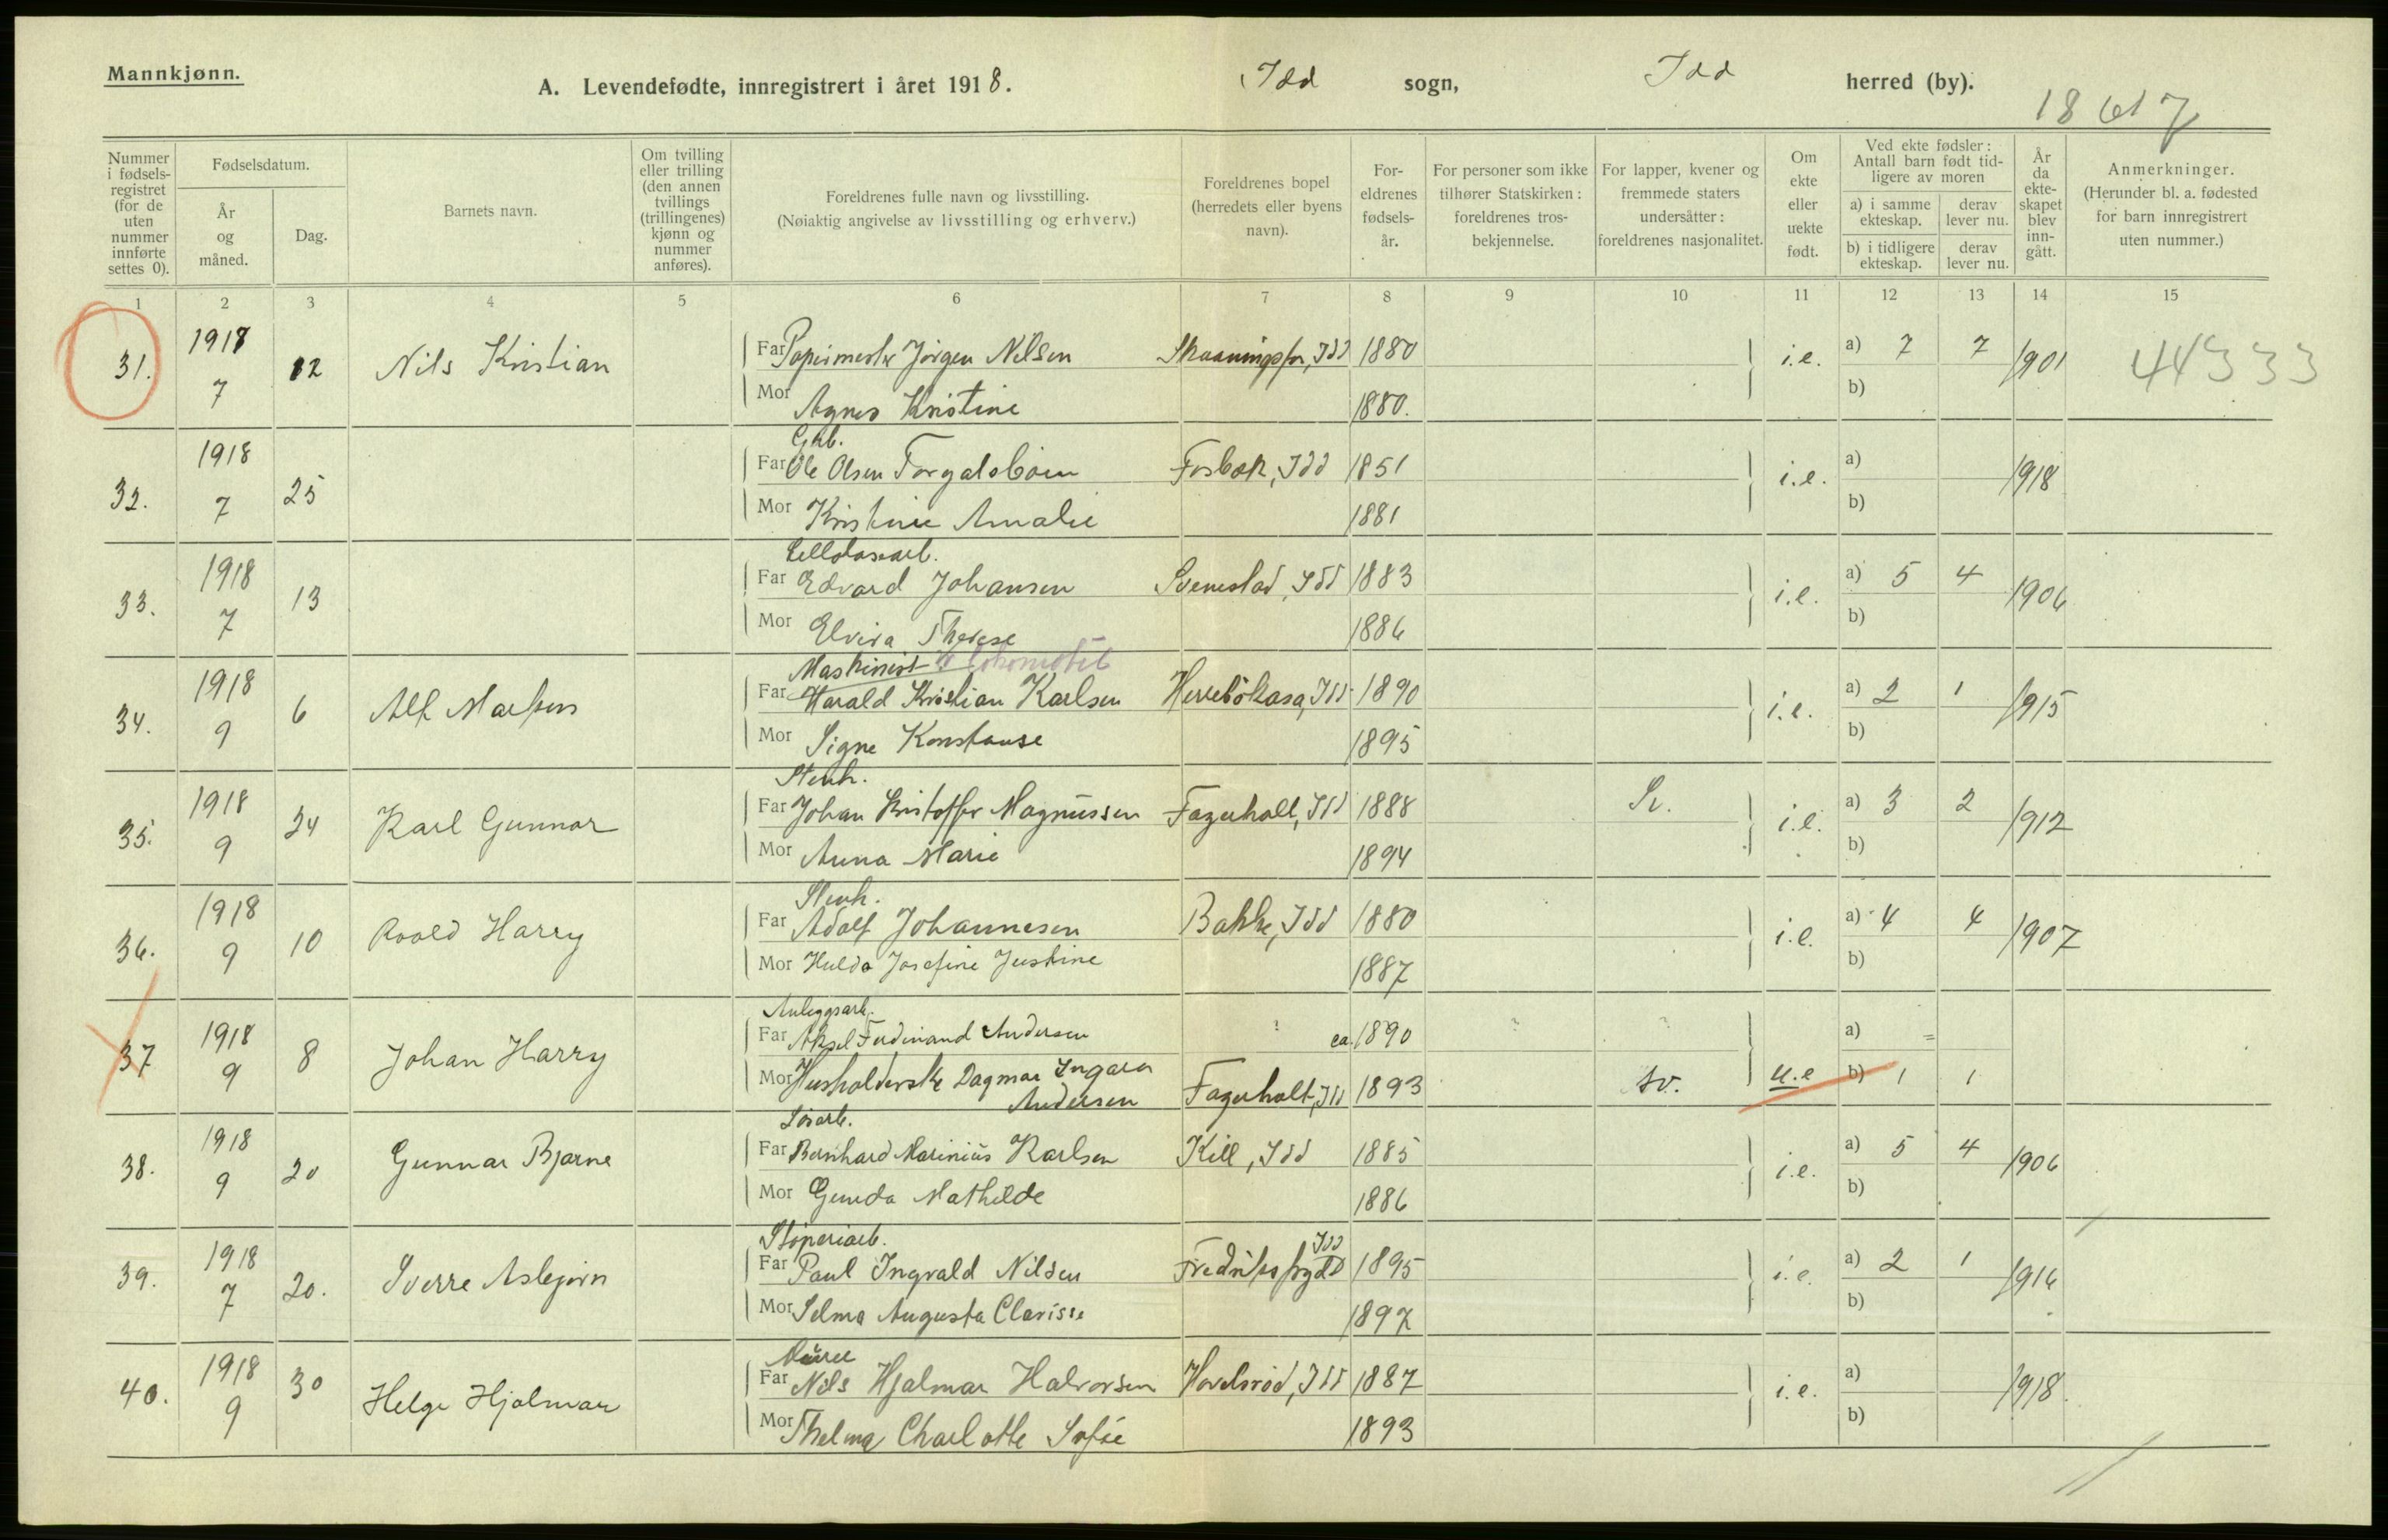 Mannkjønn.
A. Levendefødte, innregistrert i året 1918. Idd sogn, Idd herred (by).
18617
Nummer i fødselsregistret (for de uten nummer innførte settes 0).
Fødselsdatum.
År og måned.
Dag.
Barnets navn.
Om tvilling eller trilling (den annen tvillings (trillingenes) kjønn og nummer anføres).
Foreldrenes fulle navn og livsstilling.
(Nøiaktig angivelse av livsstilling og erhverv.)
Foreldrenes bopel (herredets eller byens navn).
Foreldrenes fødselsår.
For personer som ikke tilhører Statskirken: foreldrenes trosbekjennelse.
For lapper, kvener og fremmede staters undersåtter: foreldrenes nasjonalitet.
Om ekte eller uekte født.
Ved ekte fødsler: Antall barn født tidligere av moren
a) i samme ekteskap. derav lever nu.
b) i tidligere ekteskap. derav lever nu.
År da ekteskapet blev inngått.
Anmerkninger.
(Herunder bl. a. fødested for barn innregistrert uten nummer.)
1 2 3 4 5 6 7 8 9 10 11 12 13 14 15
31. 1918 7 12 Nils Kristian Far Papirmester Jørgen Nilsen Idd 1880 i.e. a) 7 7 1901 44333
Mor Agnes Kristine 1880. b)
Gkb.
32. 1918 7 25 Far Ole Olsen Torgalsbøen Fosbæk, Idd 1851 i.e. a) 1918
Mor Kristine Amalie 1881 b)
Cellulosearb.
33. 1918 7 13 Far Edvard Johansen Svenestad, Idd 1883 i.e. a) 5 4 1906
Mor Elvira Therese 1886 b)
Maskinist lokomotiv
34. 1918 9 6 Alf Far Harald Kristian Karlsen Herrebøkasa, Idd 1890 i.e. a) 2 1 1915
Mor Signe Konstanse 1895 b)
Stenh.
35. 1918 9 24 Karl Gunnar Far Johan Kristoffer Magnussen Fagerholt, Idd 1888 Sv. i.e. a) 3 2 1912
Mor Anna Marie 1894 b)
Stenh.
36. 1918 9 10 Roald Harry Far Adolf Johannesen Bakke, Idd 1880 i.e. a) 4 4 1907
Mor Hulda Josefine Justine 1887 b)
Anleggsarb.
37 1918 9 8 Johan Harry Far Aksel Ferdinand Andersen ? ca. 1890 ? ? a) =
Mor Husholderske Dagmar Ingara Andersen Fagerholt, Idd 1893 sv. u.e b) 1 1
Løsarb.
38. 1918 9 20 Gunnar Bjarne Far Bernhard Marinius Karlsen Kill, Idd 1885 i.e. a) 5 4 1906
Mor Gunda Mathilde 1886 b)
Støperiarb.
39. 1918 7 20. Sverre Asbjørn Far Paul Ingvald Nilsen Fredriksfryd Idd 1895 i.e. a) 2 1 1916
Mor Selma Augusta Clarisse 1897 b)
Murer
40. 1918 9 30 Helge Hjalmar Far Nils Hjalmar Halvorsen Hovelsrød, Idd 1887 i.e. a) 1918.
Mor Thelma Charlotte Sofie 1893 b)